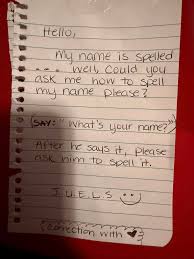 Hello,
My name is spelled
... well, could you
ask me how to spell
my name please?
(SAY: "What's your name?")
After he says it, please
ask him to spell it.
J.U.E.L.S ☺
Correction with ♥